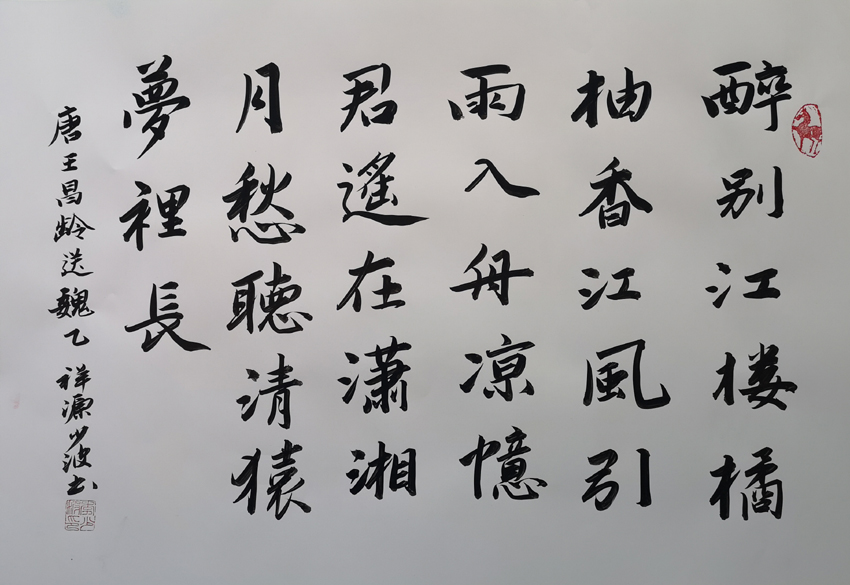 醉别江楼橘
柚香江風引
雨入舟凉憶
君遥在潇湘
月愁聽清猿
夢裡長
唐王昌龄送魏乙祥源少波书